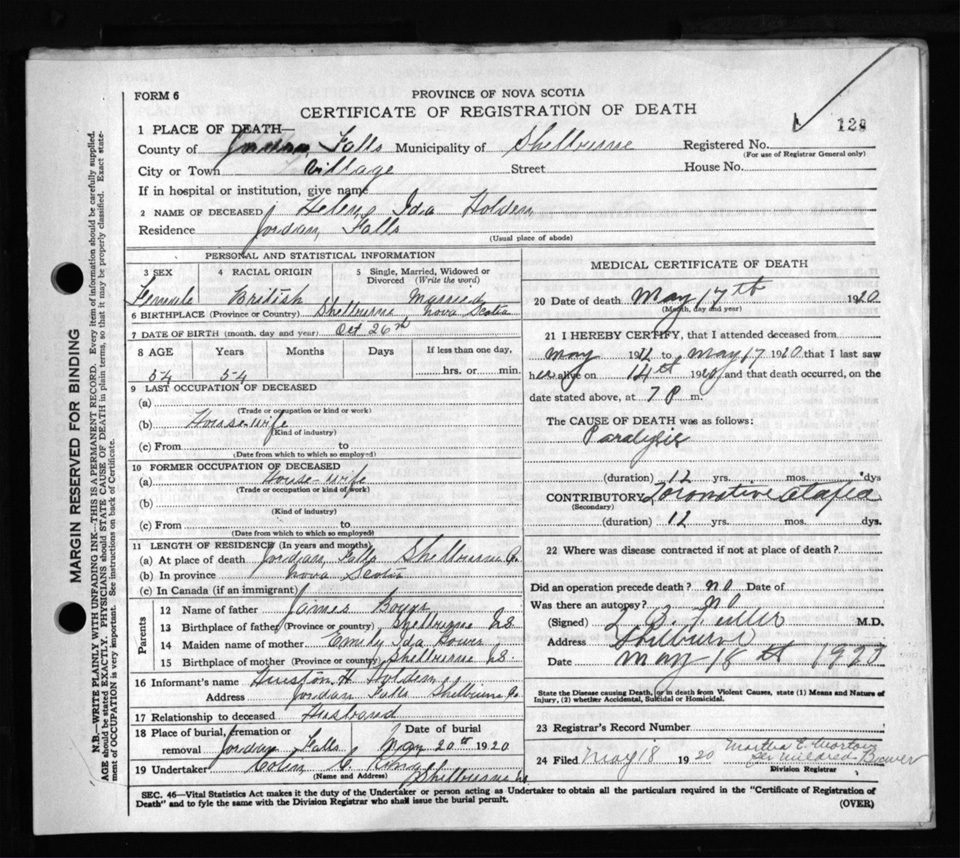 FORM 6
PROVINCE OF NOVA SCOTIA
CERTIFICATE OF REGISTRATION OF DEATH
1 129
1 PLACE OF DEATH—
County of Jordan Falls Municipality of Shelburne Registered No.
(For use of Registrar General only)
City or Town Village Street House No.
If in hospital or institution, give name
2 NAME OF DECEASED Helen Ida Holden
Residence Jordan Falls
(Usual place of abode)
PERSONAL AND STATISTICAL INFORMATION
3 SEX 4 RACIAL ORIGIN 5 Single, Married, Widowed or Divorced (Write the word)
Female British Married
6 BIRTHPLACE (Province or Country) Shelburne Nova Scotia
7 DATE OF BIRTH (month, day and year) Oct 26th
8 AGE Years Months Days If less than one day,
54 54 hrs. or min.
9 LAST OCCUPATION OF DECEASED
(a)
(Trade or occupation or kind or work)
(b) House-wife
(Kind of industry)
(c) From to
(Date from which to which so employed)
10 FORMER OCCUPATION OF DECEASED
(a) House-wife
(Trade or occupation or kind of work)
(b)
(Kind of industry)
(c) From to
(Date from which to which so employed)
11 LENGTH OF RESIDENCE (In years and months)
(a) At place of death Jordan Falls Shelburne Co.
(b) In province Nova Scotia
(c) In Canada (if an immigrant)
Parents
12 Name of father James Bower
13 Birthplace of father (Province or country) Shelburne NS.
14 Maiden name of mother Emily Ida Bower
15 Birthplace of mother (Province or country) Shelburne NS.
16 Informant's name H. Holden
Address Jordan Falls Shelburne Co
17 Relationship to deceased Husband
18 Place of burial, cremation or removal Jordan Falls Date of burial May 20th 1920
19 Undertaker Colin C. Shelburne
(Name and Address)
MEDICAL CERTIFICATE OF DEATH
20 Date of death May 17th 1920
(Month, day and year)
21 I HEREBY CERTIFY, that I attended deceased from
May 19 to May 17 1920 that I last saw
her alive on 14th 1920 and that death occurred, on the
date stated above, at 7 P m.
The CAUSE OF DEATH was as follows:
Paralysis
(duration) 12 yrs. mos. dys
CONTRIBUTORY Locomotive Ataxia
(Secondary)
(duration) 12 yrs. mos. dys.
22 Where was disease contracted if not at place of death?
Did an operation precede death? no Date of
Was there an autopsy? no
(Signed) M.D.
Address Shelburne
Date May 18th 1920
State the Disease causing Death, or in death from Violent Causes, state (1) Means and Nature of
Injury, (2) whether Accidental, Suicidal or Homicidal.
23 Registrar's Record Number
24 Filed May 18 1920 Martha E. Morton
per Mildred Bower
Division Registrar
SEC. 46—Vital Statistics Act makes it the duty of the Undertaker or person acting as Undertaker to obtain all the particulars required in the "Certificate of Registration of
Death" and to fyle the same with the Division Registrar who shall issue the burial permit. (OVER)
MARGIN RESERVED FOR BINDING
N.B.—WRITE PLAINLY WITH UNFADING INK—THIS IS A PERMANENT RECORD. Every item of information should be carefully supplied.
AGE should be stated EXACTLY. PHYSICIANS should STATE CAUSE OF DEATH in plain terms, so that it may be properly classified. Exact state-
ment of OCCUPATION is very important. See instructions on back of Certificate.